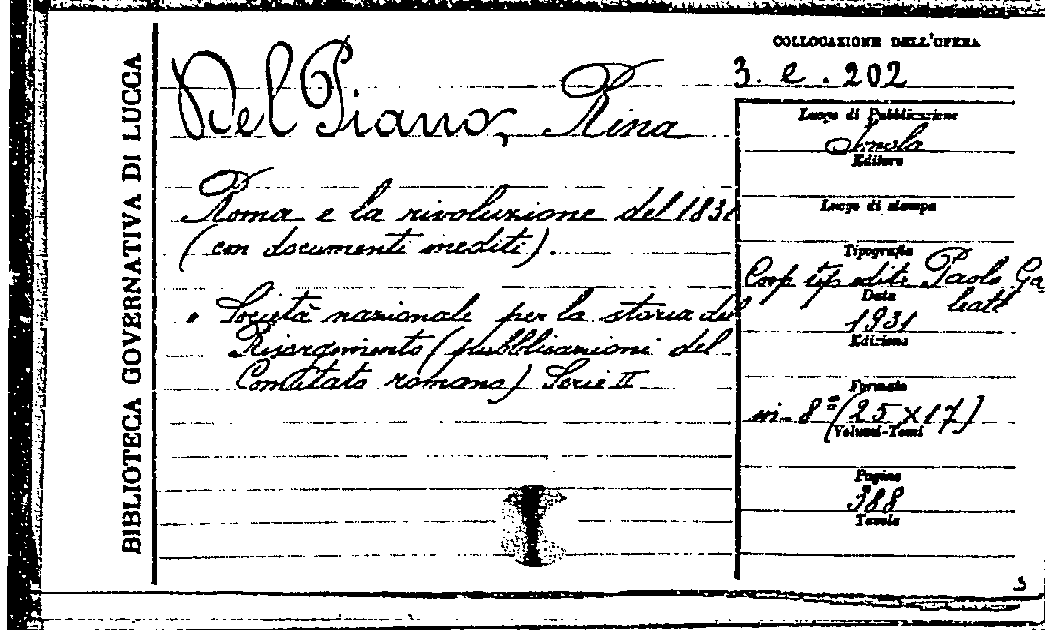 BIBLIOTECA GOVERNATIVA DI LUCCA
Del Piano, Rina
Roma e la rivoluzione del 1831
(con documenti inediti).
Società nazionale per la storia del
Risorgimento (pubblicazioni del
Comitato romano) Serie II
COLLOCAZIONE DELL'OPERA
3. e. 202
Luogo di Pubblicazione
Imola
Editore
Luogo di stampa
Tipografia
Coop tip edit. Paolo Ga
leati
Data
1931
Edizione
Formato
in-8º (25 x 17)
Volumi-Tomi
Pagine
388
Tavole
3